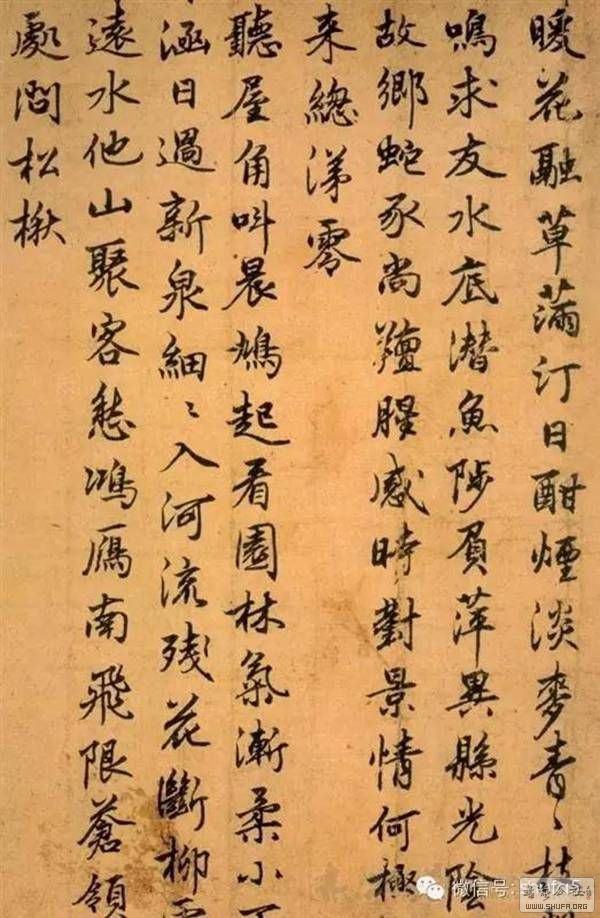 暖花融草滿汀日酣煙淡麥青〻枝
鳴求友水底潛魚陟負萍異縣光陰
故鄉蛇豕尚羶腥感時對景情何極
来總涕零
聽屋角叫晨鳩起看園林氣漸柔小
涵日過新泉細〻入河流残花斷柳
遠水他山聚客愁鴻雁南飛限蒼領
處問松楸
微信号:
WWW.SHUFA.ORG